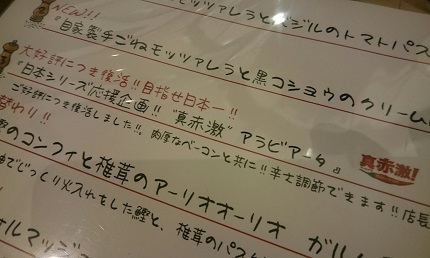 モッツァレラとバジルのトマトパス
NEW!!
"自家製手ごねモッツァレラと黒コショウのクリーム
大好評につき復活!!目指せ日本一!!
"日本シリーズ応援企画!!"真赤激"アラビアータ』
真赤激!
ご好評につき復活しました!!。肉厚なベーコンと共に!!辛さ調節できます!!店長
替わり!!
のコンフィと椎茸のアーリオオーリオ ガル
でじっくり火入れをした鰹と、椎茸のパスタ
ォルマッジ